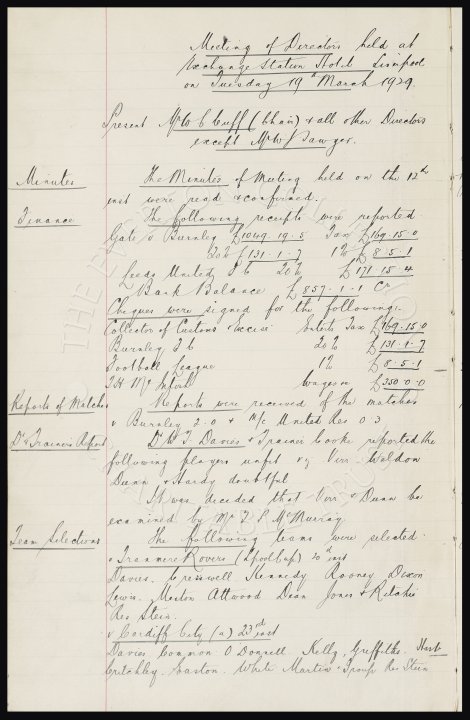 Meeting of Directors held at
Exchange Station Hotel Liverpool
on Tuesday 19th March 1929.
Present Mr W C Cuff (Chair) & all other Directors
except Mr W J Sawyer.
Minutes
The Minutes of Meeting held on the 12th
inst were read & confirmed.
Finance
The following receipts were reported
Gate v Burnley £1049.19.5 Tax £169.15.0
20% £131.1.7 1% £8.5.1
Leeds United F C 20% £171.15.4
Bank Balance £857.1.1 Cr
Cheques were signed for the following:-
Collector of Customs & Excise Entertns Tax £169.15.0
Burnley F C 20% £131.1.7
Football League 1% £8.5.1
wages £350.0.0
Reports of Matches
Reports were received of the matches
v Burnley 2.0 & M/c United Res 0.3
Dr & Trainers Report
Dr W. F. Davies & Trainer Cooke reported the
following players unfit viz Virr Weldon
Dunn & Hardy doubtful
It was decided that Virr & Dunn be
examined by Mr McMurray.
Team Selections
The following teams were selected
v Tranmere Rovers (L'pool Cup) 20th inst
Davies. Cresswell Kennedy Rooney Dixon
Lewis. Meston Attwood Dean Jones & Ritchie
Res Stein.
v Cardiff City (a) 23rd inst
Davies Common O'Donnell Kelly Griffiths. Hart
Critchley. Easton. White Martin & Troup Res Stein